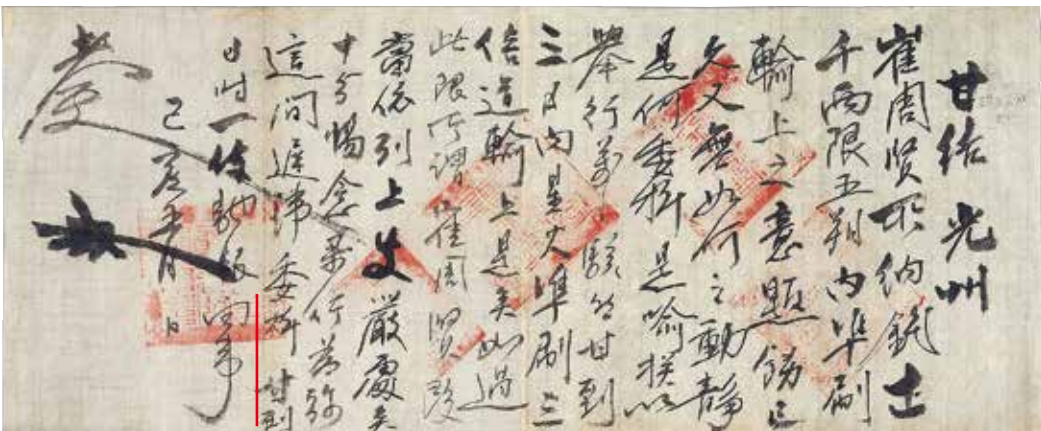 甘結 光州
崔周賢所納錢
千兩限五朔內準刷
輸上之意題飭已
久又無如何之動靜
是何委折是喩揆以
擧行萬〻駭然甘到
三日內星火準刷三
倍道輸上是矣如過
此限所謂崔周賢段
當依 上 嚴處矣
十分惕念擧行爲旀
這間遲滯委折甘到
日時一倂馳報向事
己亥 月 日